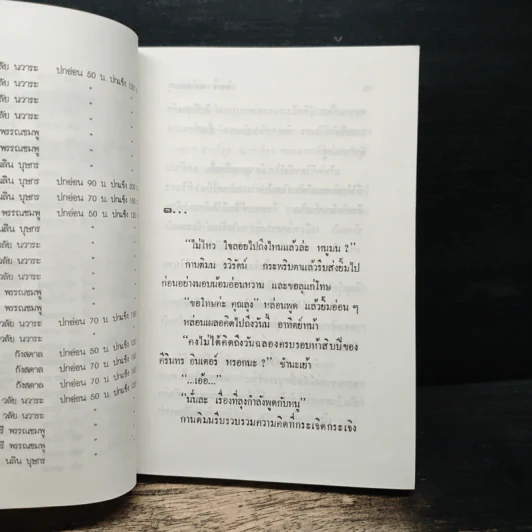 วลัย นวาระ ปกอ่อน 50 น. ปกแข็ง
วลัย นวาระ " "
วลัย นวาระ " "
วลัย นวาระ " "
พรรณชมพู " "
พรรณชมพู " "
นลิน บุษกร " "
นลิน บุษกร ปกอ่อน 90 น. ปกแข็ง
นลิน บุษกร ปกอ่อน 70 น. ปกแข็ง
พรรณชมพู ปกอ่อน 50 น. ปกแข็ง
วลัย นวาระ " "
วลัย นวาระ " "
วลัย นวาระ " "
วลัย นวาระ " "
พรรณชมพู " "
พรรณชมพู " "
วลัย นวาระ ปกอ่อน 70 น. ปกแข็ง
วลัย นวาระ " "
กังสดาล ปกอ่อน 50 น. ปกแข็ง
กังสดาล ปกอ่อน 70 น. ปกแข็ง
กังสดาล ปกอ่อน 70 น. ปกแข็ง
วลัย นวาระ ปกอ่อน 50 น. ปกแข็ง
วลัย นวาระ " "
พรรณชมพู " "
พรรณชมพู " "
นลิน บุษกร " "
๑...
“ไม่ไหว ใจลอยไปถึงไหนแล้วล่ะ หนูมน ?”
กานติมน รวิรัตน์ กระพริบตาแล้วรีบส่งยิ้มไป
ก่อนอย่างนอบน้อมอ่อนหวาน และขอลุแก่โทษ
“ขอโทษค่ะ คุณลุง” หล่อนพูด แล้วยิ้มอ่อน ๆ
หล่อนเผลอคิดไปถึงวันนี้ อาทิตย์หน้า
“คงไม่ได้คิดถึงวันฉลองครบรอบห้าสิบปีของ
ศิรินทร อินเตอร์ หรอกนะ ?” ข้านะเย้า
“...เอ้อ...”
“นั่นละ เรื่องที่ลุงกำลังพูดกับหนู”
กานติมนรีบรวบรวมความคิดที่กระเจิดกระเจิง